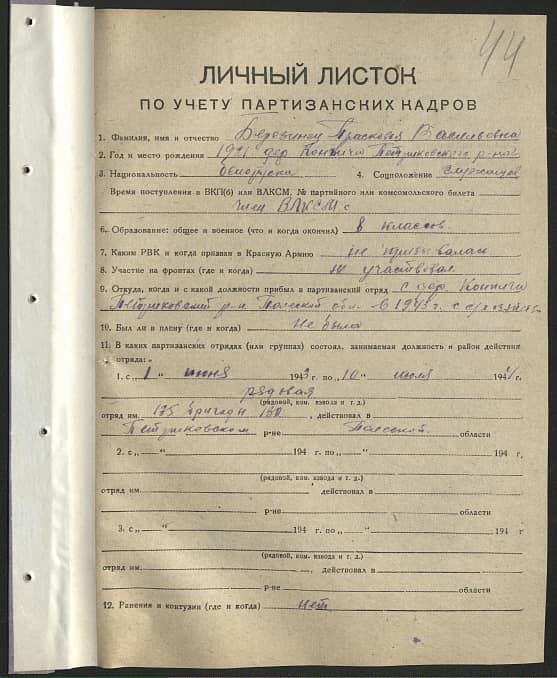 44
ЛИЧНЫЙ ЛИСТОК
ПО УЧЕТУ ПАРТИЗАНСКИХ КАДРОВ
1. Фамилия, имя и отчество Прасковья Васильевна
2. Год и место рождения дер
3. Национальность белоруска 4. Соцположение служащая
Время поступления в ВКП(б) или ВЛКСМ, № партийного или комсомольского билета
член ВЛКСМ с
6. Образование: общее и военное (что и когда окончил) 8 классов
7. Каким РВК и когда призван в Красную Армию не призывалась
8. Участие на фронтах (где и когда) не участвовал
9. Откуда, когда и с какой должности прибыл в партизанский отряд с дер.
р-н Полесской обл. в 1943 г. с
10. Был ли в плену (где и когда) не была
11. В каких партизанских отрядах (или группах) состоял, занимаемая должность и район действия
отряда:
1. с „1“ июня 1943 г. по „10“ июля 1944 г.
рядовая
(рядовой, ком. взвода и т. д.)
отряд им. бригады , действовал в
р-не Полесской области
2. с „ “ 194 г. по „ “ 194 г,
(рядовой, ком. взвода и т. д.)
отряд им. , действовал в
р-не области
3. с „ “ 194 г. по „ “ 194 г
(рядовой, ком. взвода и т. д.)
отряд им. , действовал в
р-не области
12. Ранения и контузии (где и когда) нет